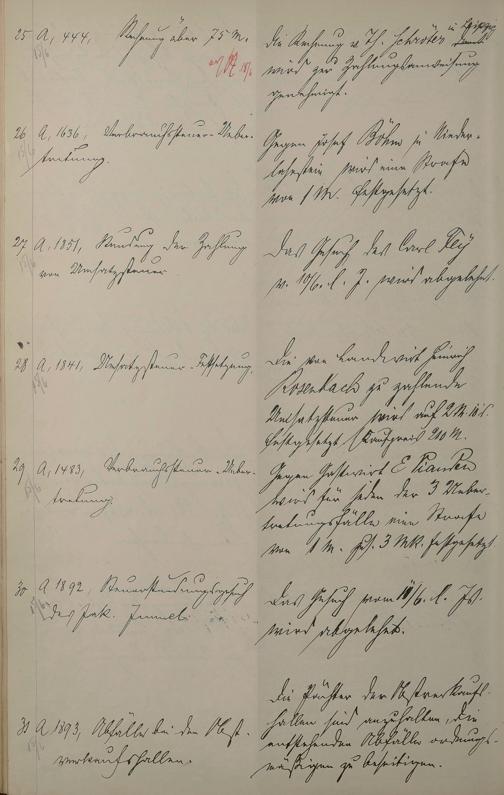 25 A, 444, Rechnung über 75 M.
Die Rechnung v. Th. Schröter u.
wird zur Zahlungsanweisung
genehmigt.
26 A, 1636, Verbrauchssteuer-Ueber-
tretung.
Gegen Josef Böhm zu Nieder-
lahnstein wird eine Strafe
von 1 M. festgesetzt.
27 A, 1851, Stundung der Zahlung
von Umsatzsteuer
Das Gesuch des Carl
v. 10/6. l. J. wird abgelehnt.
28 A, 1841, Umsatzsteuer-Festsetzung.
Die von Landwirt Heinrich
Rosenbach zu zahlende
Umsatzsteuer wird auf 2 M.
festgesetzt (Kaufpreis 210 M.
29 A, 1483, Verbrauchssteuer-Ueber-
tretung
Gegen Gastwirt E
wird für jeden der 3 Ueber-
tretungsfälle eine Strafe
von 1 M. zus. 3 Mk. festgesetzt
30 A 1892, Steuerstundungsgesuch
des Jak. Immel.
Das Gesuch vom 10/6. l. Js.
wird abgelehnt.
31 A, 1893, Abfälle bei den Obst-
verkaufshallen.
Die Pächter der Obstverkaufs-
hallen sind anzuhalten, die
entstehenden Abfälle ordnungs-
mäßigen zu beseitigen.